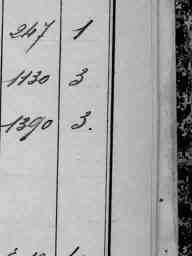 247 1
1130 3
1390 3.